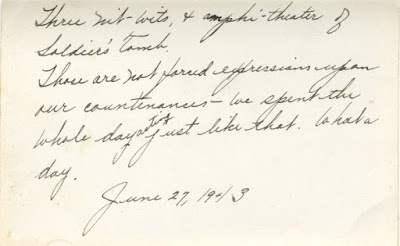 Three nit-wits, & amphi-theater of
Soldier's tomb.
Those are not forced expressions upon
our countenances - we spent the
whole day just like that. What a
day.
June 27, 1943